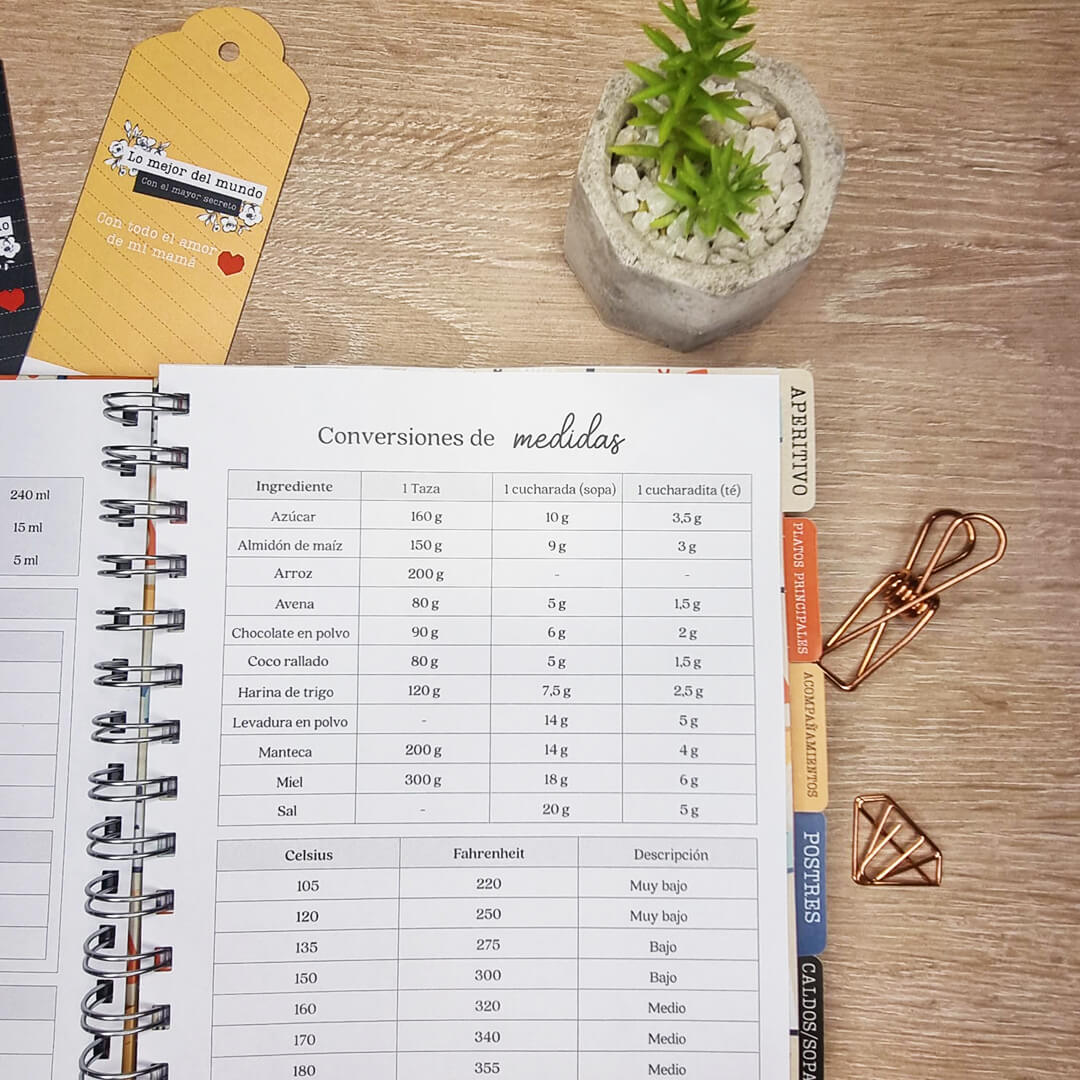 Lo mejor del mundo
Con el mayor secreto
Con todo el amor
de mi mamá
240 ml
15 ml
5 ml
Conversiones de medidas
Ingrediente 1 Taza 1 cucharada (sopa) 1 cucharadita (té)
Azúcar 160 g 10 g 3,5 g
Almidón de maíz 150 g 9 g 3 g
Arroz 200 g - -
Avena 80 g 5 g 1,5 g
Chocolate en polvo 90 g 6 g 2 g
Coco rallado 80 g 5 g 1,5 g
Harina de trigo 120 g 7,5 g 2,5 g
Levadura en polvo - 14 g 5 g
Manteca 200 g 14 g 4 g
Miel 300 g 18 g 6 g
Sal - 20 g 5 g
Celsius Fahrenheit Descripción
105 220 Muy bajo
120 250 Muy bajo
135 275 Bajo
150 300 Bajo
160 320 Medio
170 340 Medio
180 355 Medio
APERITIVO
PLATOS PRINCIPALES
ACOMPAÑAMIENTOS
POSTRES
CALDOS/SOPA